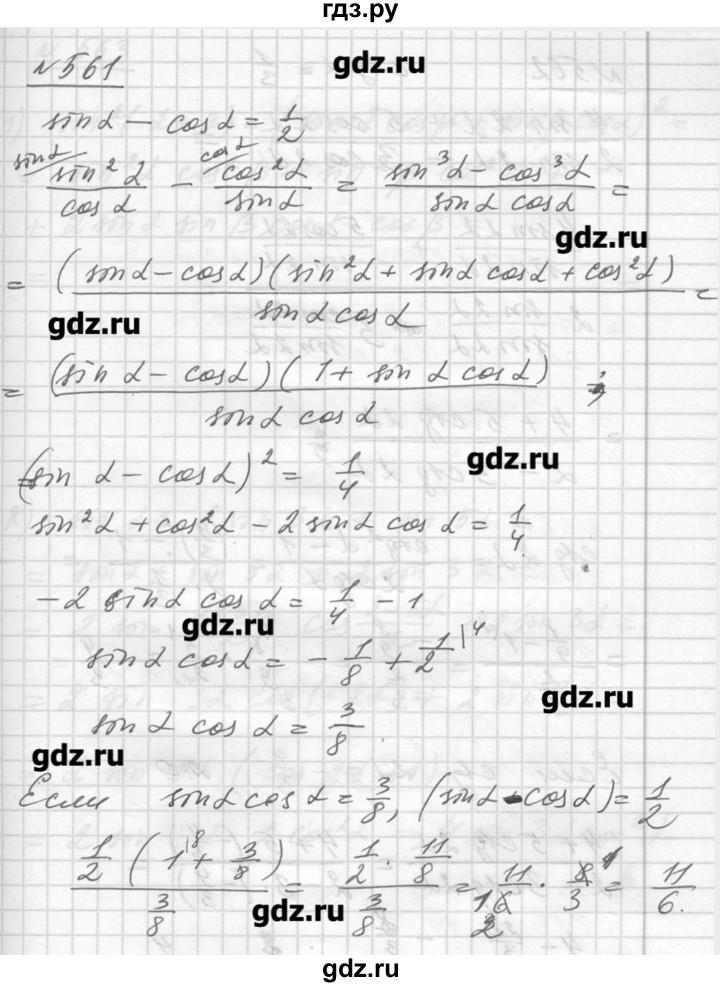 гдз.ру
№561
gdz.ru
sin α – cos α = 1/2
sin α/ sin² α / cos α – cos α/ cos² α / sin α = (sin³ α – cos³ α) / (sin α cos α) =
gdz.ru
= (sin α – cos α)(sin² α + sin α cos α + cos² α) / (sin α cos α) =
gdz.ru
= (sin α – cos α)(1 + sin α cos α) / (sin α cos α) ;
(sin α – cos α)² = 1/4
gdz.ru
sin² α + cos² α – 2 sin α cos α = 1/4
– 2 sin α cos α = 1/4 – 1
gdz.ru
sin α cos α = – 1/8 + 1/2 |4
gdz.ru
sin α cos α = 3/8.
gdz.ru
Если sin α cos α = 3/8, (sin α – cos α) = 1/2
(1/2 (1 |8 + 3/8)) / (3/8) = (1/2 · 11/8) / (3/8) = 11/16 · 8/3 = 11/6.
gdz.ru
gdz.ru